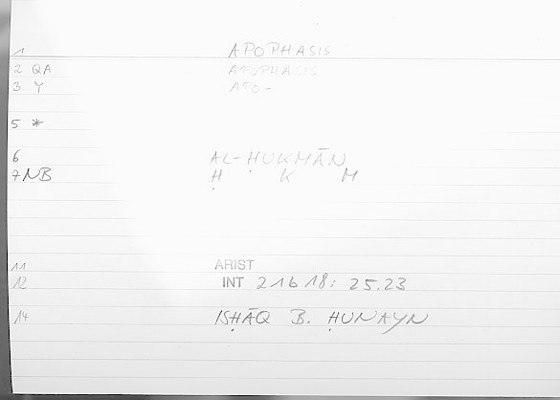 1 APOPHASIS
2 QA APOPHASIS
3 Y APO-
5 *
6 AL-ḤUKMĀN
7 NB Ḥ K M
11 ARIST
12 INT 21b18: 25.23
14 ISḤĀQ B. ḤUNAYN